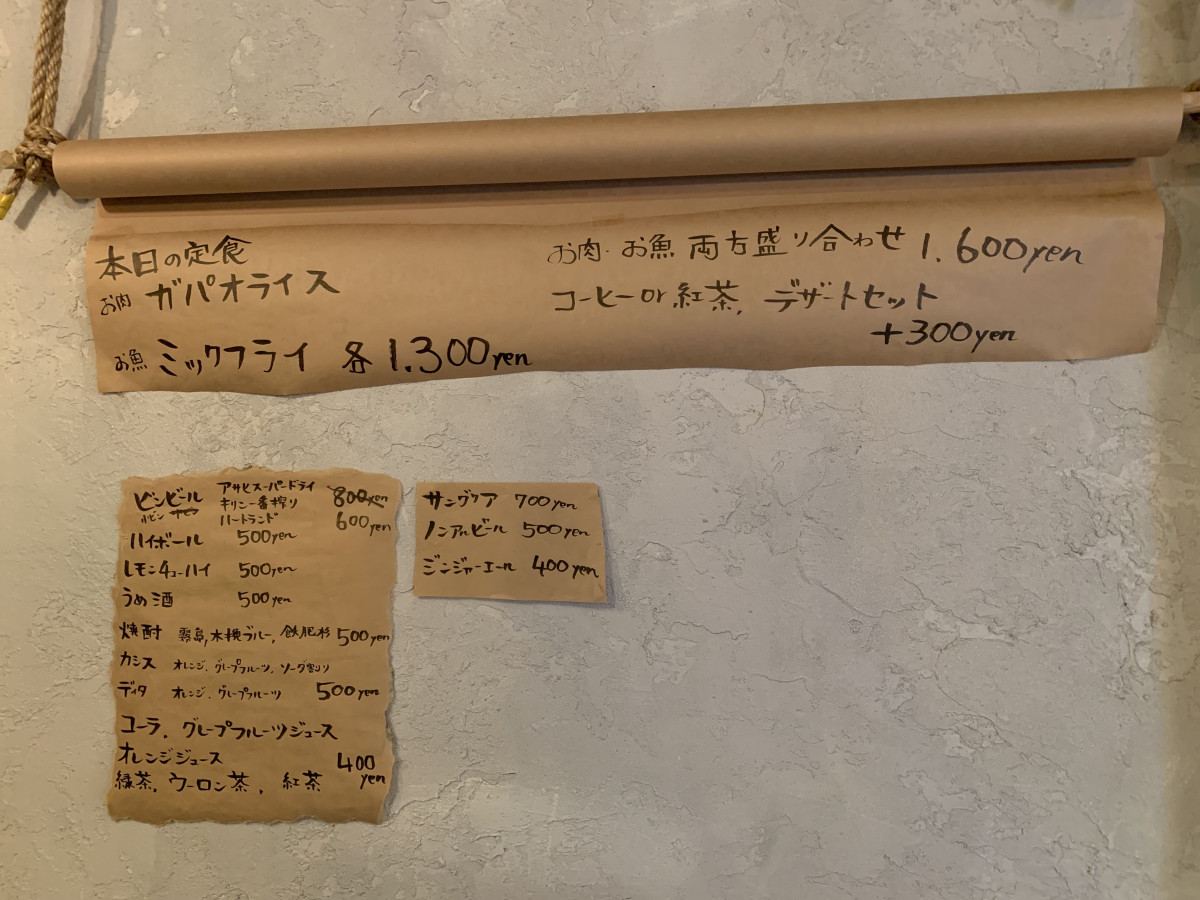 本日の定食
お肉 ガパオライス
お魚 ミックフライ 各 1.300yen
お肉・お魚 両方盛り合わせ 1.600yen
コーヒーor紅茶、デザートセット
+300yen
ビンビール アサヒスーパードライ 800yen
小ビン キリン一番搾り
ハートランド 600yen
ハイボール 500yen
レモンチューハイ 500yen
うめ酒 500yen
焼酎 霧島,木挽ブルー,飫肥杉 500yen
カシス オレンジ、グレープフルーツ、ソーダ割り
ディタ オレンジ、グレープフルーツ 500yen
コーラ、グレープフルーツジュース
オレンジジュース 400
緑茶、ウーロン茶、紅茶 yen
サングリア 700yen
ノンアルビール 500yen
ジンジャーエール 400yen